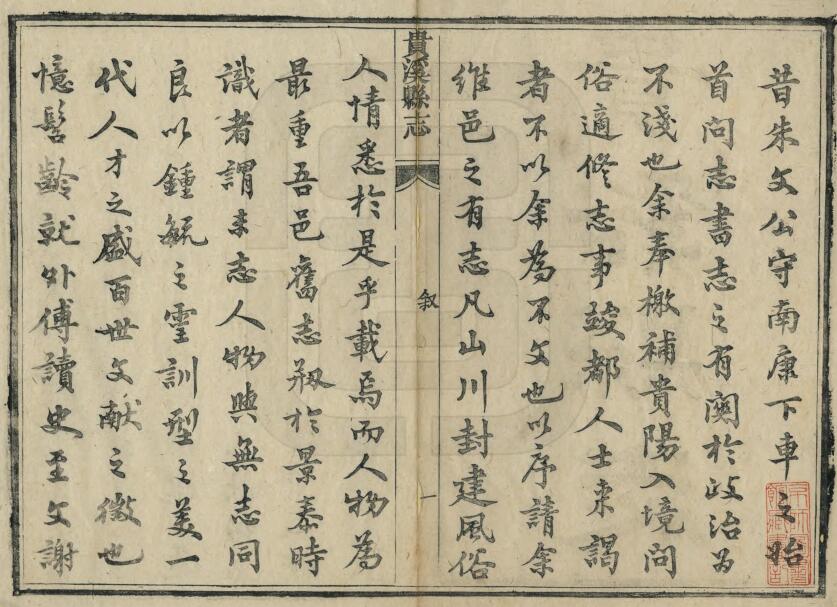 昔朱文公守南康下車之始
首問志書志之有闗於政治爲
不淺也余奉檄補貴陽入境問
俗適修志事竣都人士来謁
者不以余爲不文也以序請余
維邑之有志凡山川封建風俗
貴溪縣志
叙
一
人情悉於是乎載焉而人物爲
最重吾邑舊志剏於景泰時
識者謂志人物與無志同
良以鍾毓之靈訓型之美一
代人才之盛百世文獻之徵也
憶髫齡就外傅讀史至文謝